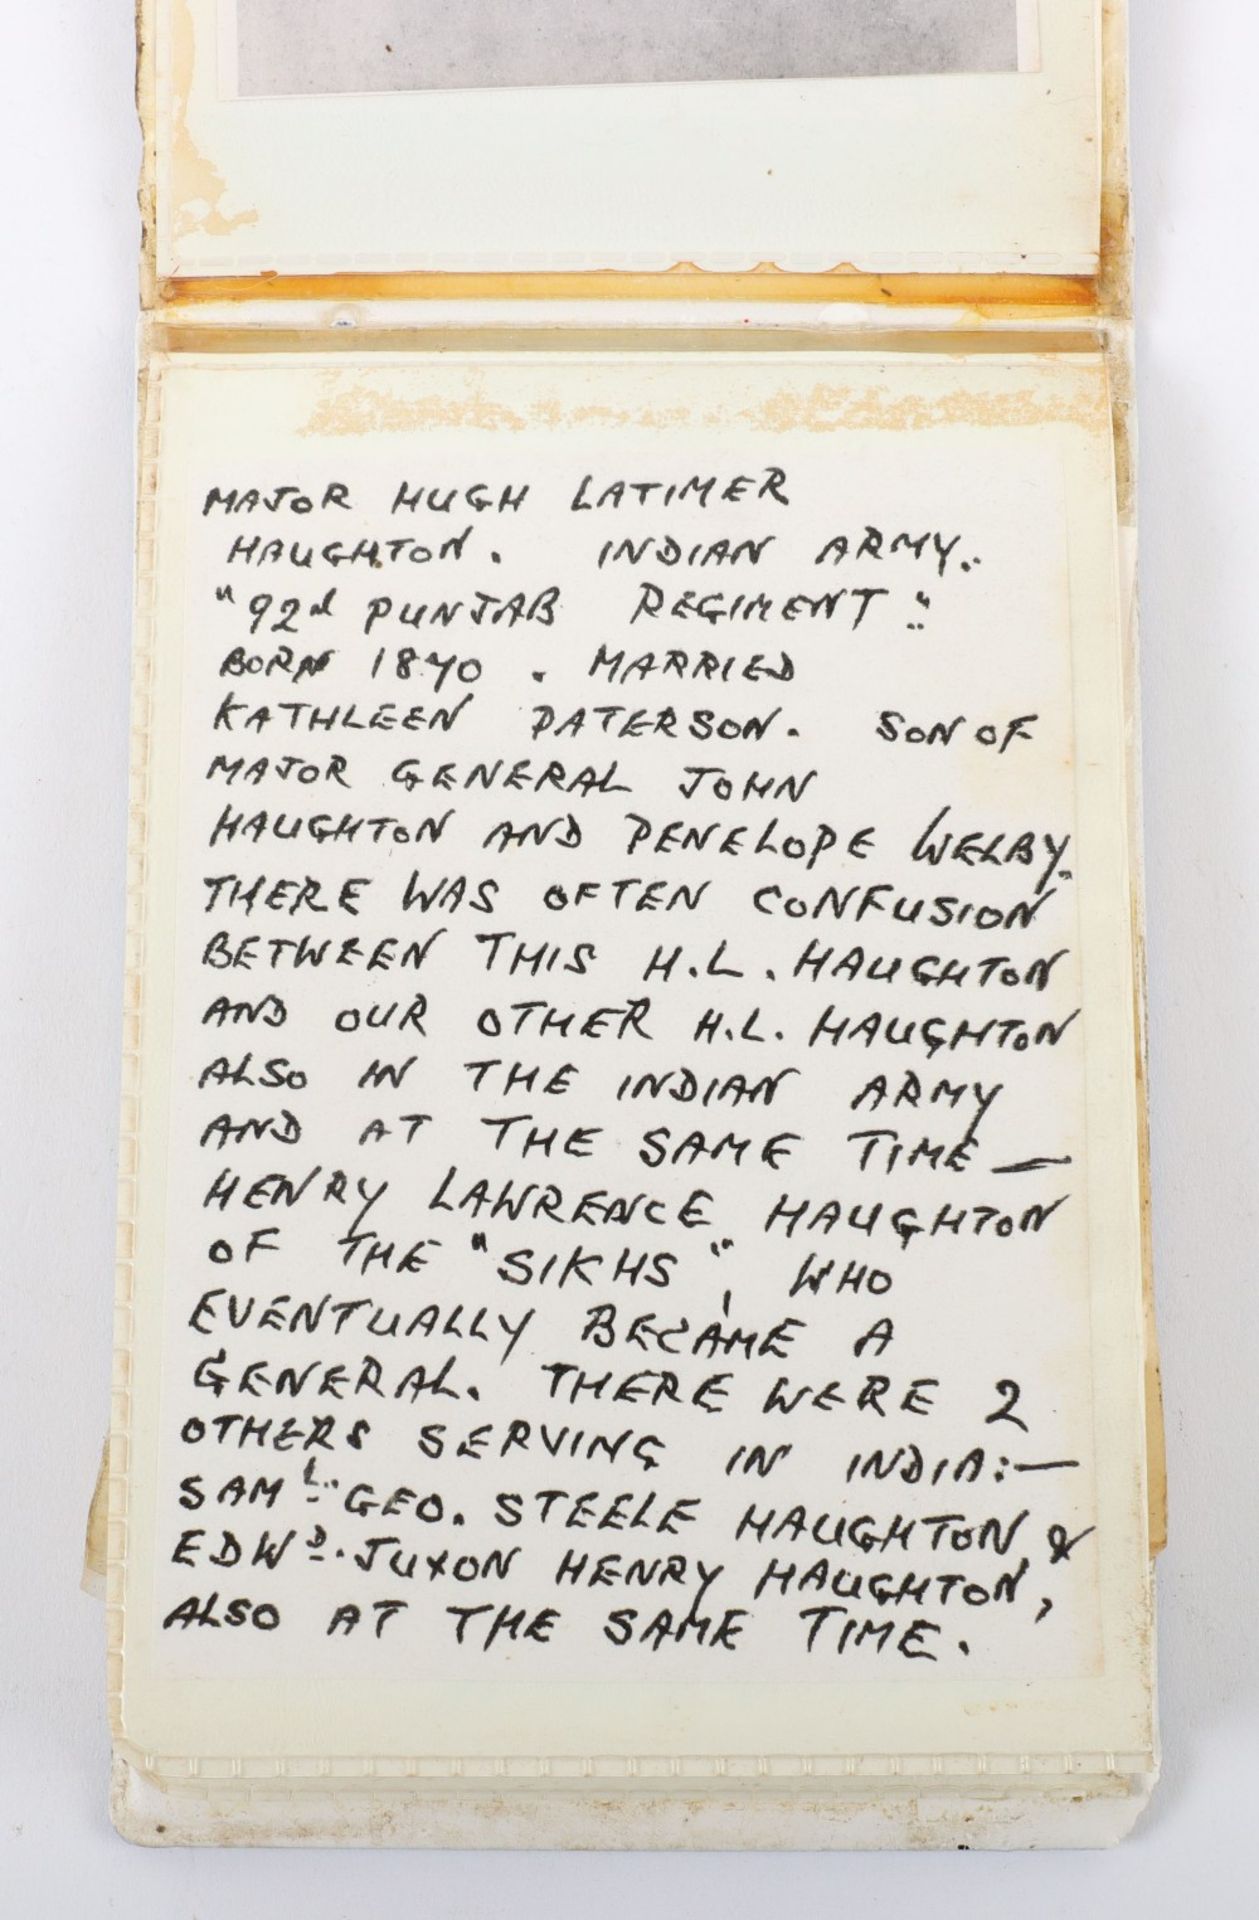 MAJOR HUGH LATIMER
HAUGHTON. INDIAN ARMY.
"92d PUNJAB REGIMENT".
BORN 1870. MARRIED
KATHLEEN PATERSON. SON OF
MAJOR GENERAL JOHN
HAUGHTON AND PENELOPE WELBY.
THERE WAS OFTEN CONFUSION
BETWEEN THIS H.L. HAUGHTON
AND OUR OTHER H.L. HAUGHTON
ALSO IN THE INDIAN ARMY
AND AT THE SAME TIME —
HENRY LAWRENCE HAUGHTON
OF THE "SIKHS", WHO
EVENTUALLY BECAME A
GENERAL. THERE WERE 2
OTHERS SERVING IN INDIA:—
SAML. GEO. STEELE HAUGHTON &
EDWD. JUXON HENRY HAUGHTON,
ALSO AT THE SAME TIME.